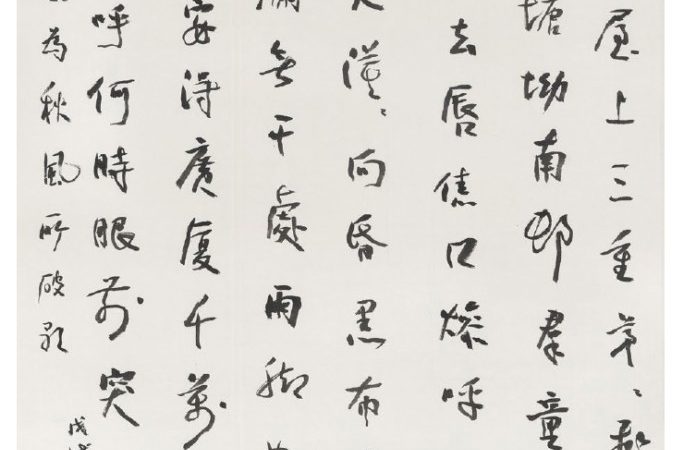 屋上三重茅〻
塘坳南邨羣童
去唇焦口燥呼
漠〻向昏黑布
漏無干處雨脚
安得廣廈千萬
呼何時眼前突
為秋風所破歌